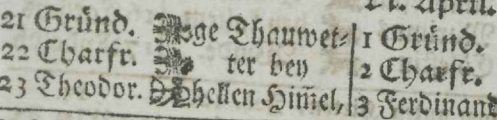 21 Gründ. ge Thauwet= 1 Gründ.
22 Charfr. ter bey 2 Charfr.
23 Theodor. hellen Him̄el, 3 Ferdinand